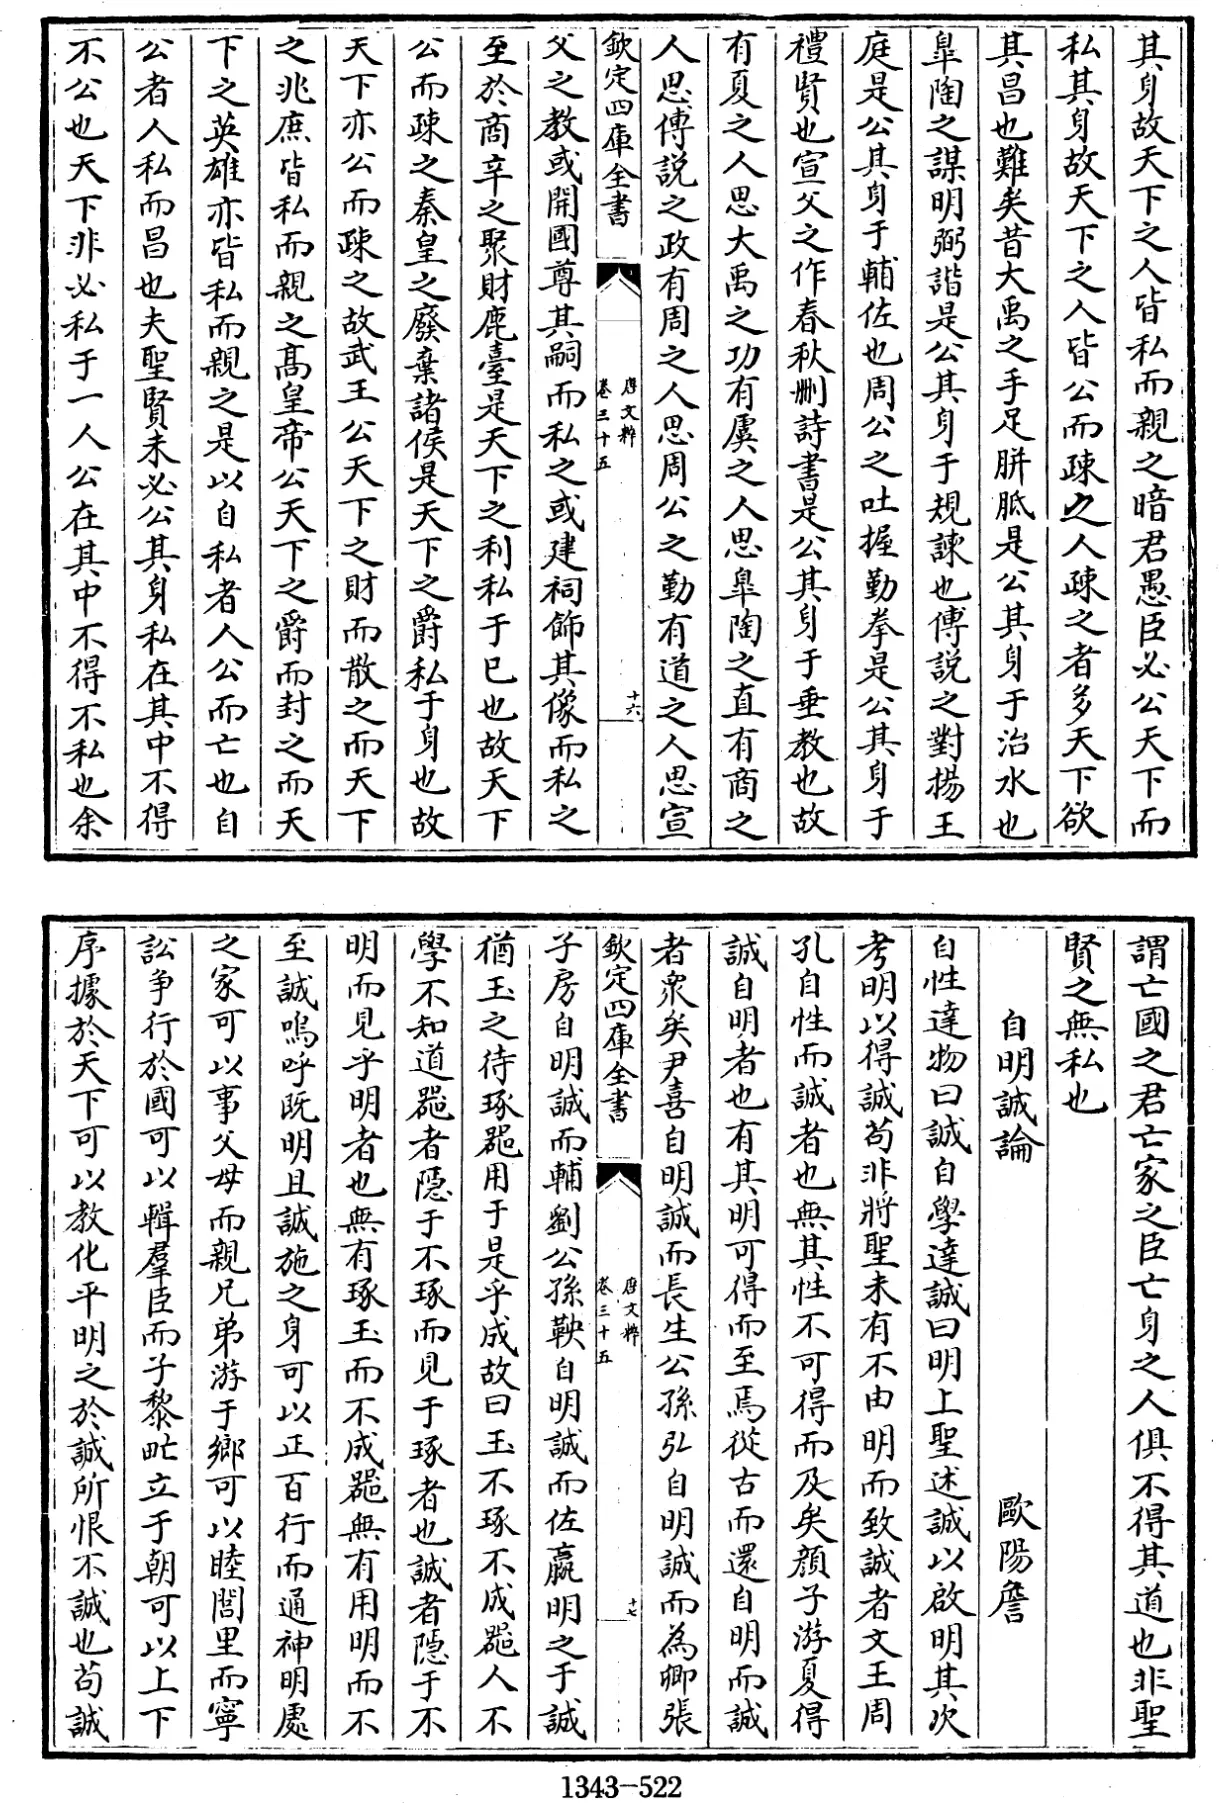 其身故天下之人皆私而親之暗君愚臣必公天下而
私其身故天下之人皆公而疎之人疎之者多天下欲
其昌也難矣昔大禹之手足胼胝是公其身于治水也
臯陶之謀明弼諧是公其身于規諫也傅説之對揚王
庭是公其身于輔佐也周公之吐握勤拳是公其身于
禮賢也宣父之作春秋刪詩書是公其身于垂教也故
有夏之人思大禹之功有虞之人思臯陶之直有商之
人思傅説之政有周之人思周公之勤有道之人思宣
欽定四庫全書
唐文粹
卷三十五
十六
父之教或開國尊其嗣而私之或建祠飾其像而私之
至於商辛之聚財鹿臺是天下之利私于已也故天下
公而疎之秦皇之廢棄諸侯是天下之爵私于身也故
天下亦公而疎之故武王公天下之財而散之而天下
之兆庶皆私而親之髙皇帝公天下之爵而封之而天
下之英雄亦皆私而親之是以自私者人公而亡也自
公者人私而昌也夫聖賢未必公其身私在其中不得
不公也天下非必私于一人公在其中不得不私也余
謂亡國之君亡家之臣亡身之人俱不得其道也非聖
賢之無私也
自明誠論 歐陽詹
自性達物曰誠自學達誠曰明上聖述誠以啟明其次
考明以得誠苟非將聖未有不由明而致誠者文王周
孔自性而誠者也無其性不可得而及矣顔子游夏得
誠自明者也有其明可得而至焉從古而還自明而誠
者衆矣尹喜自明誠而長生公孫弘自明誠而為卿張
欽定四庫全書
唐文粹
卷三十五
十七
子房自明誠而輔劉公孫鞅自明誠而佐嬴明之于誠
猶玉之待琢器用于是乎成故曰玉不琢不成器人不
學不知道器者隱于不琢而見于琢者也誠者隱于不
明而見乎明者也無有琢玉而不成器無有用明而不
至誠嗚呼既明且誠施之身可以正百行而通神明處
之家可以事父母而親兄弟游于鄉可以睦閭里而寧
訟爭行於國可以輯羣臣而子黎甿立于朝可以上下
序據於天下可以教化平明之於誠所恨不誠也苟誠
1343-522